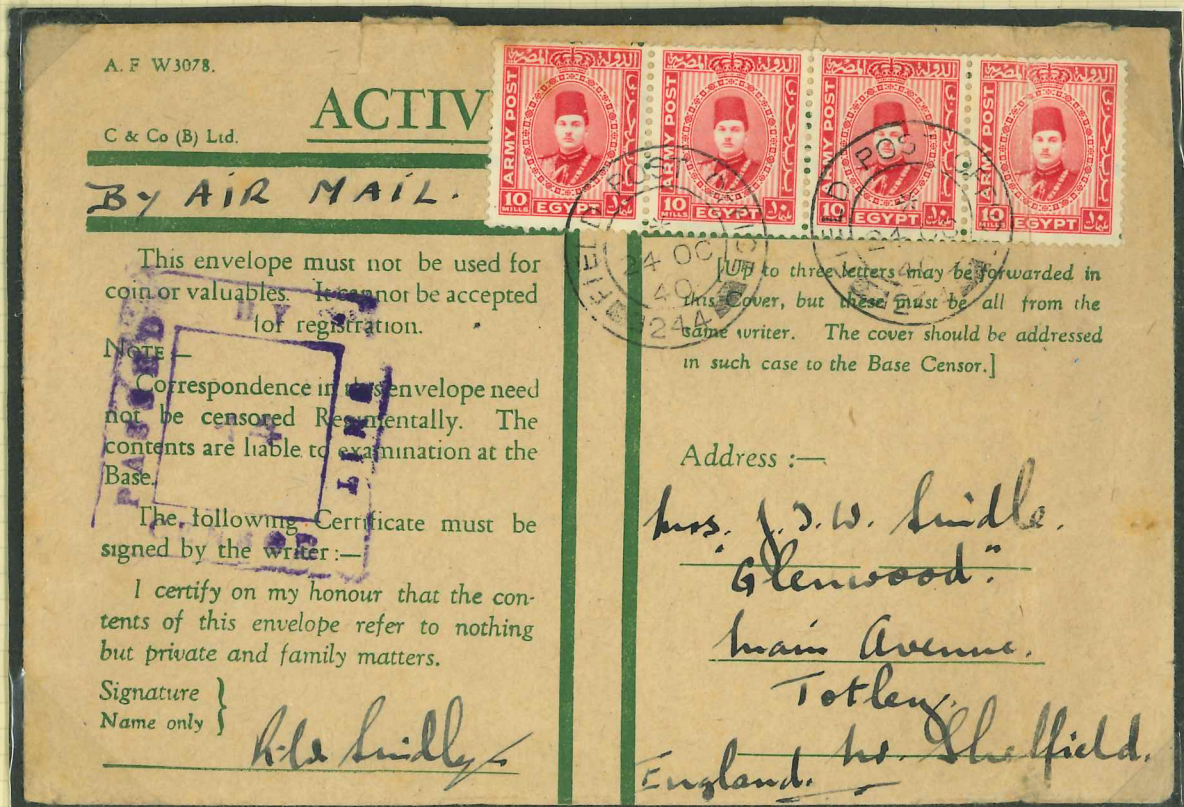 A. F W3078.
C & Co (B) Ltd.
ACTIV
By AIR MAIL.
ARMY POST
10 MILLS
EGYPT
ARMY POST
10 MILLS
EGYPT
ARMY POST
10 MILLS
EGYPT
ARMY POST
10 MILLS
EGYPT
FIELD POST OFFICE
24 OC
40
244
FIELD POST OFFICE
24 OC
40
This envelope must not be used for
coin or valuables. It cannot be accepted
for registration.
NOTE :—
Correspondence in this envelope need
not be censored Regimentally. The
contents are liable to examination at the
Base.
The following Certificate must be
signed by the writer :—
I certify on my honour that the con-
tents of this envelope refer to nothing
but private and family matters.
Signature
Name only
PASSED
BY
UNIT
CENSOR
[Up to three letters may be forwarded in
this Cover, but these must be all from the
same writer. The cover should be addressed
in such case to the Base Censor.]
Address :—
Mrs. J.W.
"Glenwood".
Main Avenue.
Totley.
Nr. Sheffield.
England.